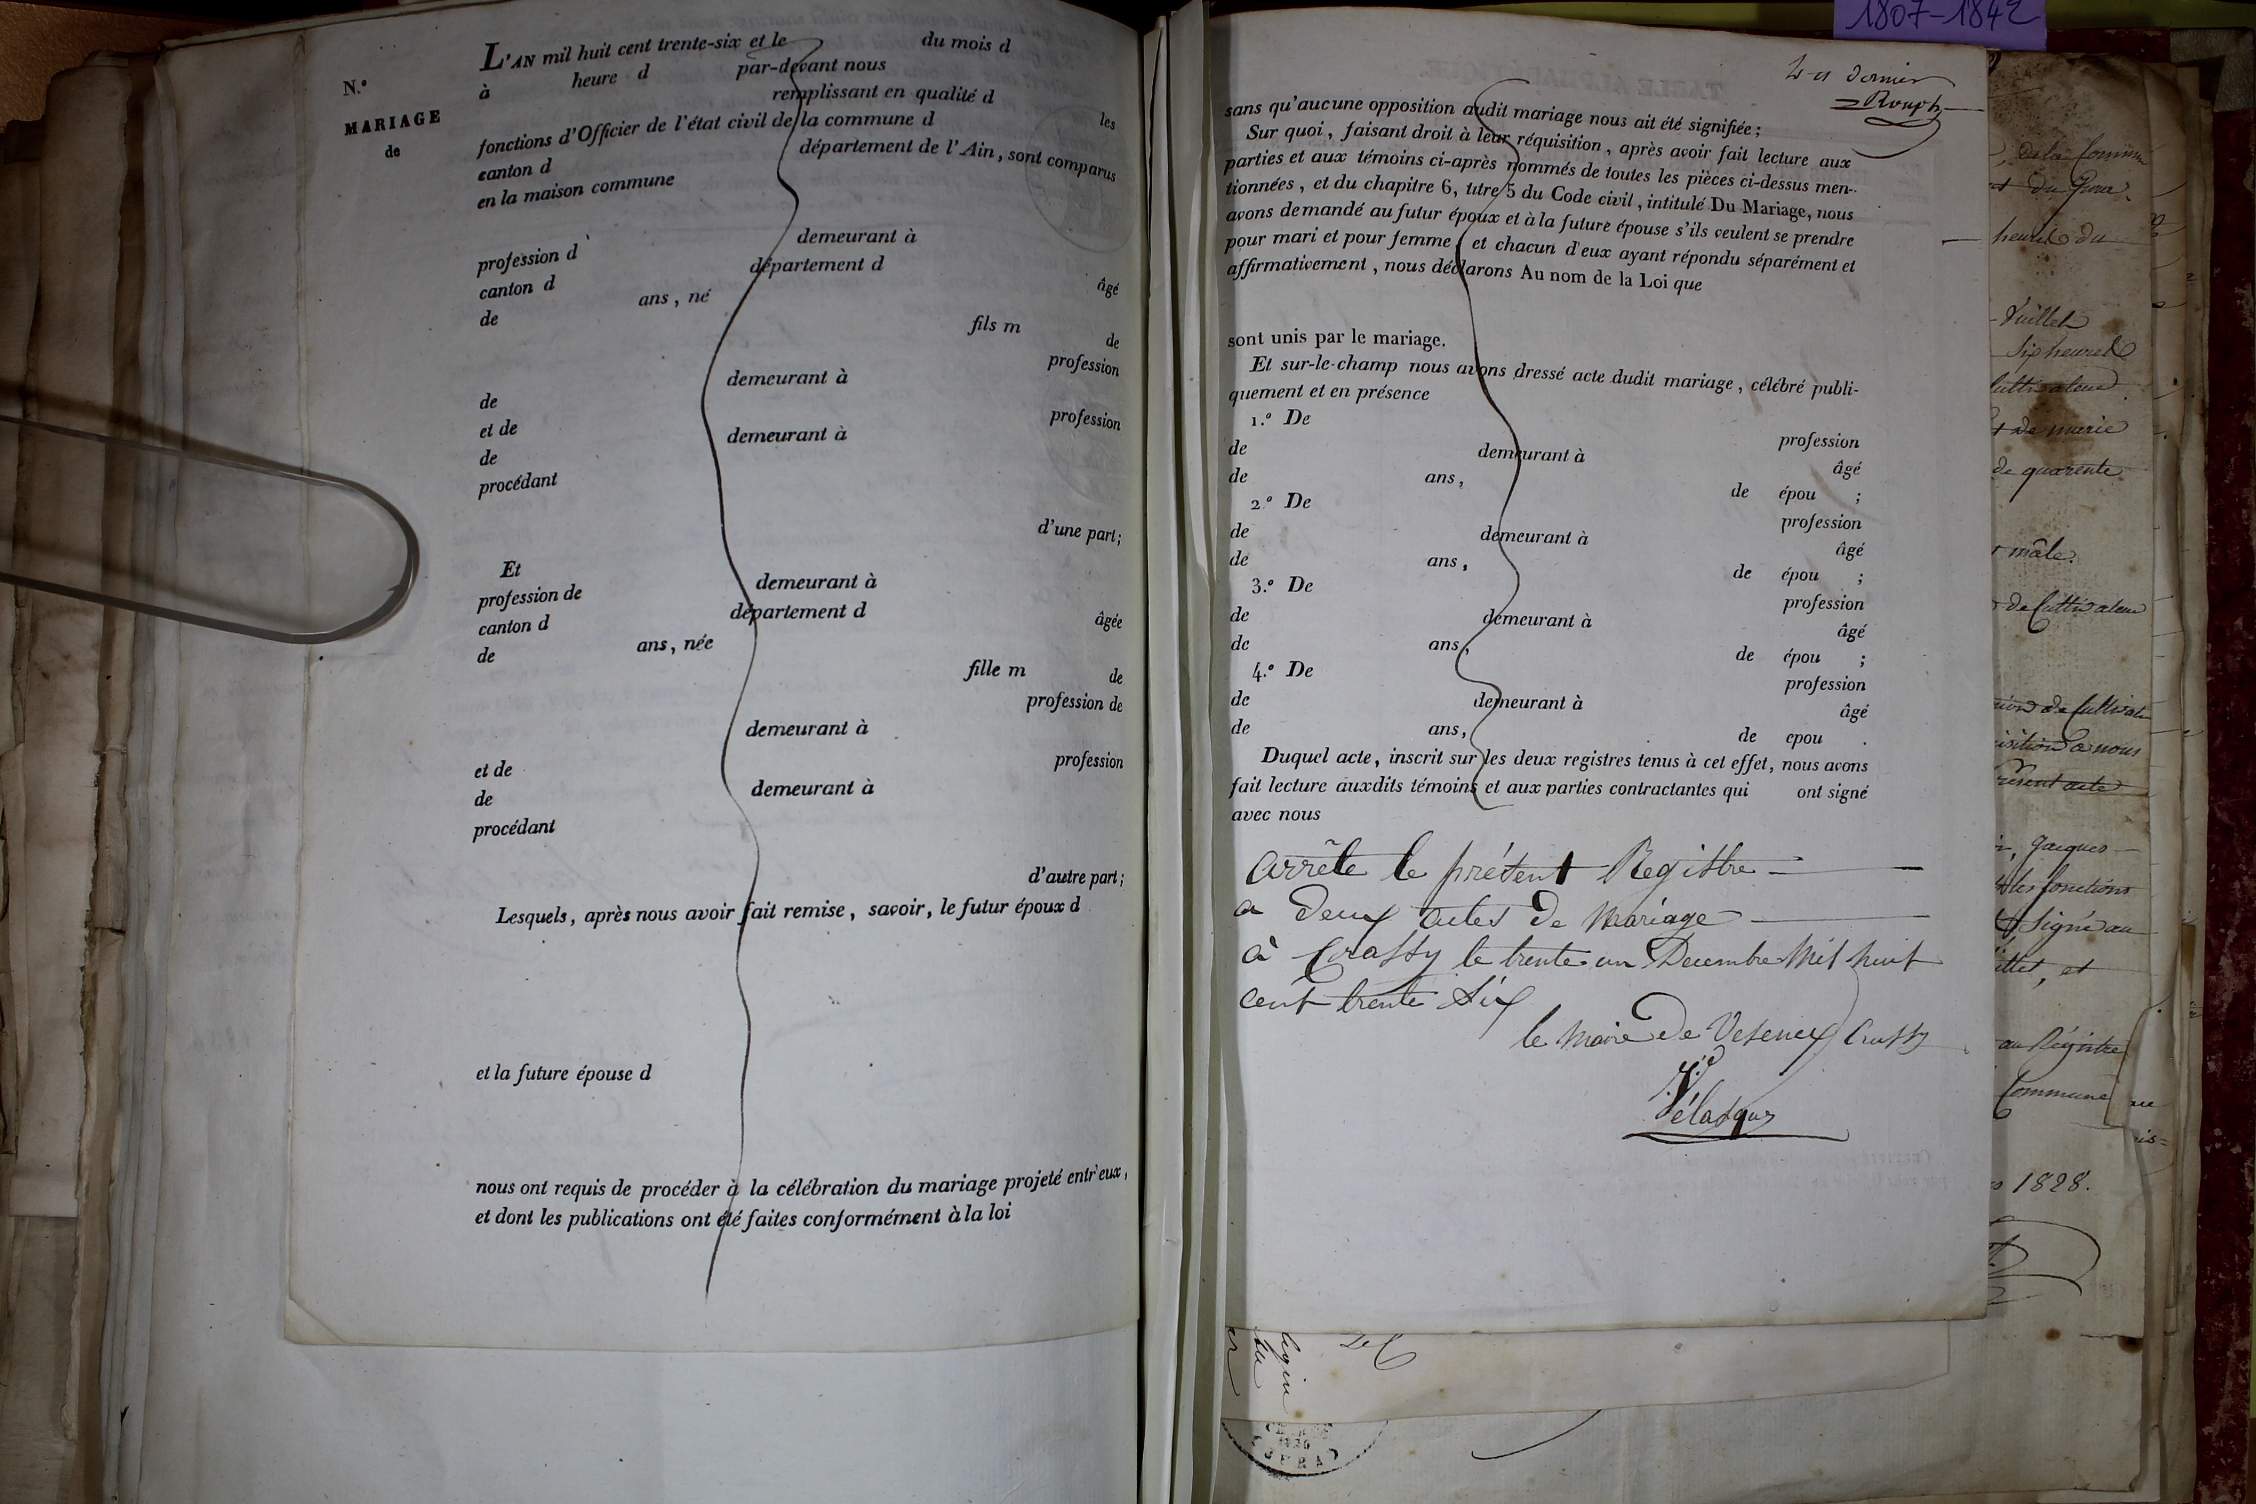 1807-1842
N.º
MARIAGE
de
L'AN mil huit cent trente-six et le du mois d
à heure d par-devant nous
remplissant en qualité d les
fonctions d'Officier de l'état civil de la commune d
canton d département de l'Ain, sont comparus
en la maison commune
profession d demeurant à
canton d département d âgé
de ans, né
fils m de
profession
de demeurant à
et de profession
de demeurant à
procédant
d'une part;
Et
profession de demeurant à
canton d département d âgée
de ans, née
fille m de
profession de
demeurant à
et de profession
de demeurant à
procédant
d'autre part;
Lesquels, après nous avoir fait remise, savoir, le futur époux d
et la future épouse d
nous ont requis de procéder à la célébration du mariage projeté entr'eux,
et dont les publications ont été faites conformément à la loi
dernier
sans qu'aucune opposition audit mariage nous ait été signifiée;
Sur quoi, faisant droit à leur réquisition, après avoir fait lecture aux
parties et aux témoins ci-après nommés de toutes les pièces ci-dessus men-
tionnées, et du chapitre 6, titre 5 du Code civil, intitulé Du Mariage, nous
avons demandé au futur époux et à la future épouse s'ils veulent se prendre
pour mari et pour femme, et chacun d'eux ayant répondu séparément et
affirmativement, nous déclarons Au nom de la Loi que
sont unis par le mariage.
Et sur-le-champ nous avons dressé acte dudit mariage, célébré publi-
quement et en présence
1.º De
de profession
demeurant à âgé
de ans, de épou ;
2.º De
de profession
demeurant à âgé
de ans, de épou ;
3.º De
de profession
demeurant à âgé
de ans, de épou ;
4.º De
de profession
demeurant à âgé
de ans, de epou .
Duquel acte, inscrit sur les deux registres tenus à cet effet, nous avons
fait lecture auxdits témoins et aux parties contractantes qui ont signé
avec nous
Arrête le présent Registre
a deux actes de mariage
à Crassy le trente un Decembre Mil huit
cent trente Six
le Maire de Vesenex Crassy
de la Commune
heures du
Juillet
Six heures
cultivateur
et de marie
de quarente
mâle.
de Cultivateur
de Cultivateur
à nous
présent acte
Jacques
les fonctions
Signé au
et
au Régistre
Commune
1828.